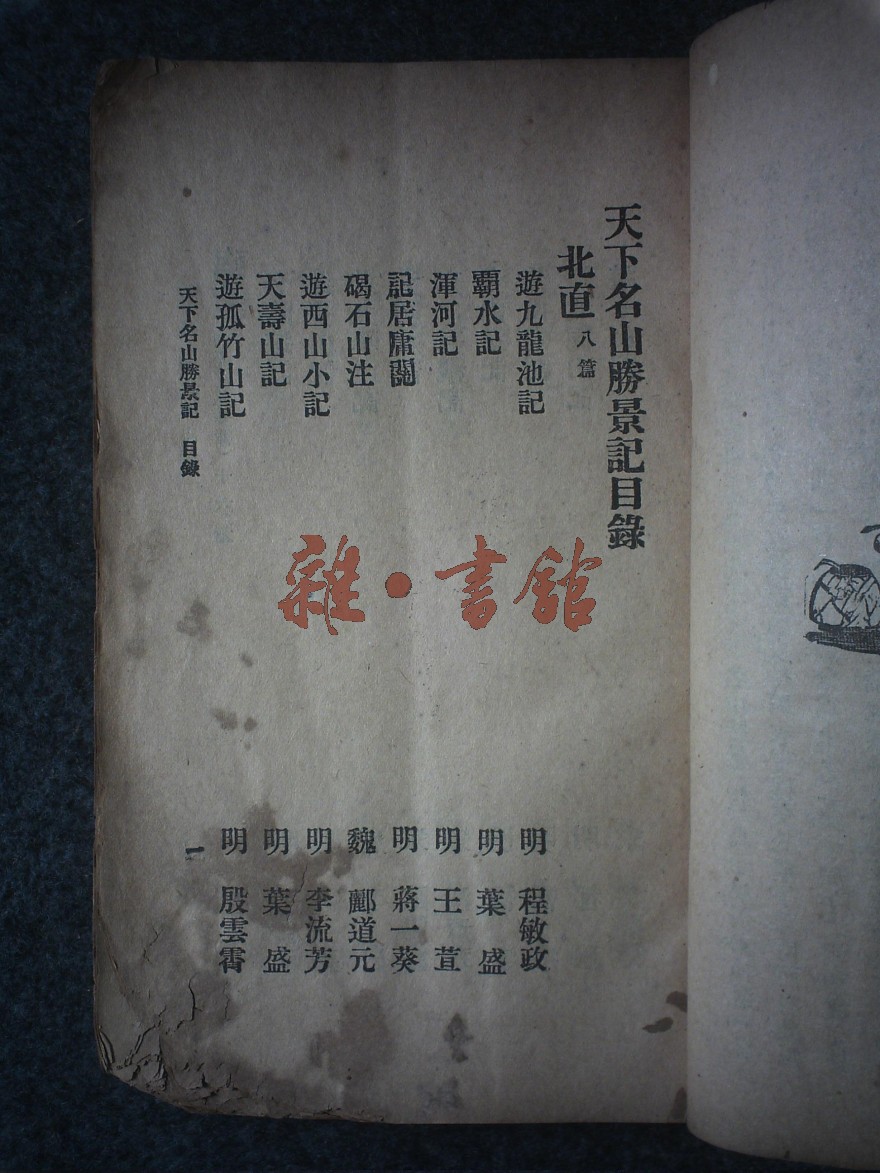 天下名山勝景記目錄
北直 八篇
遊九龍池記 明 程敏政
霸水記 明 葉盛
渾河記 明 王萱
記居庸關 明 蔣一葵
碣石山注 魏 酈道元
遊西山小記 明 李流芳
天壽山記 明 葉盛
遊孤竹山記 明 殷雲霄
天下名山勝景記 目錄 一
雜·書館